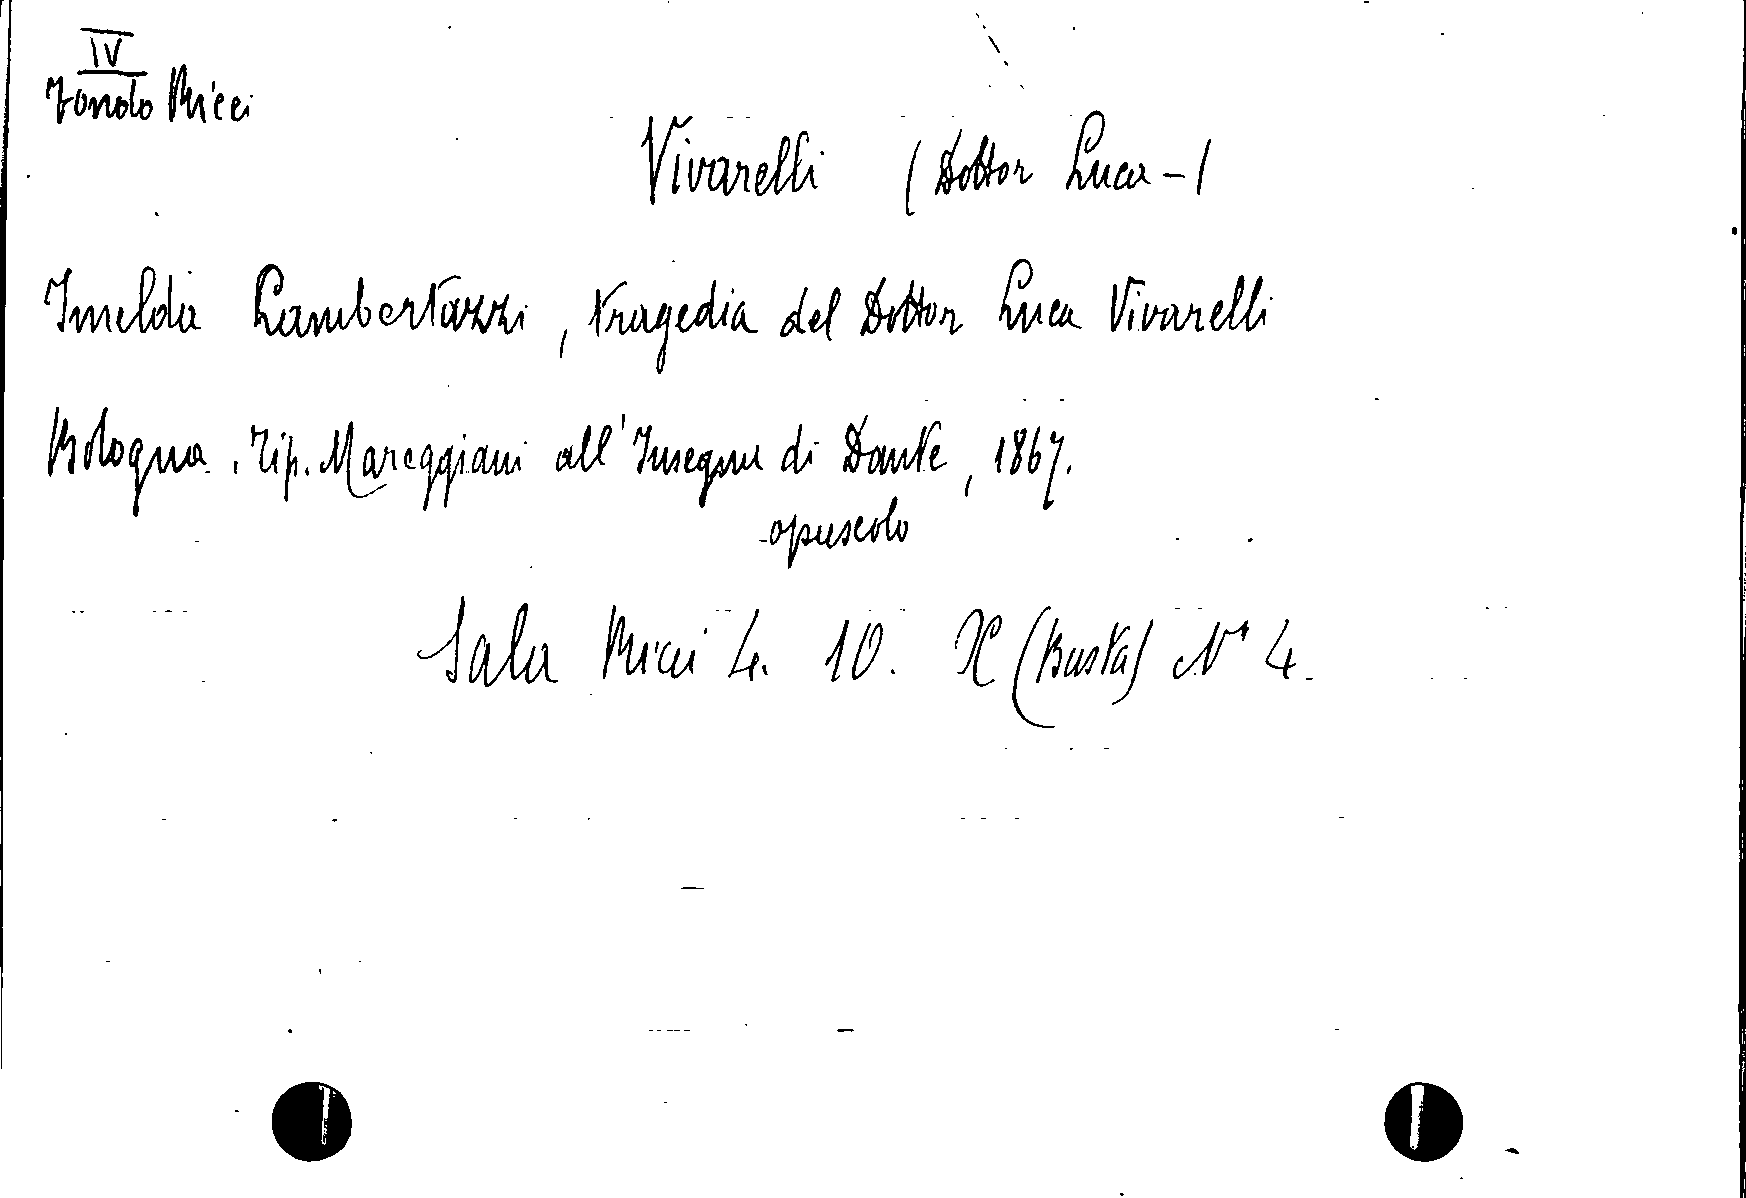 IV
Fondo Ricci
Vivarelli (Dottor Luca - )
Imelda Lambertazzi, tragedia del Dottor Luca Vivarelli
Bologna. Tip. Mareggiani all'Insegna di Dante, 1867.
opuscolo
Sala Ricci 4. 10. X (Busta) N° 4.